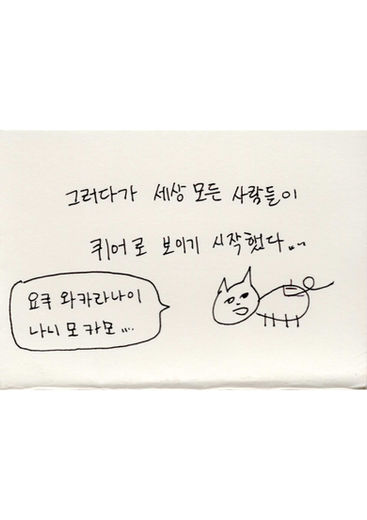 그러다가 세상 모든 사람들이
퀴어로 보이기 시작했다...
요쿠 와카라나이
나니 모 카모....